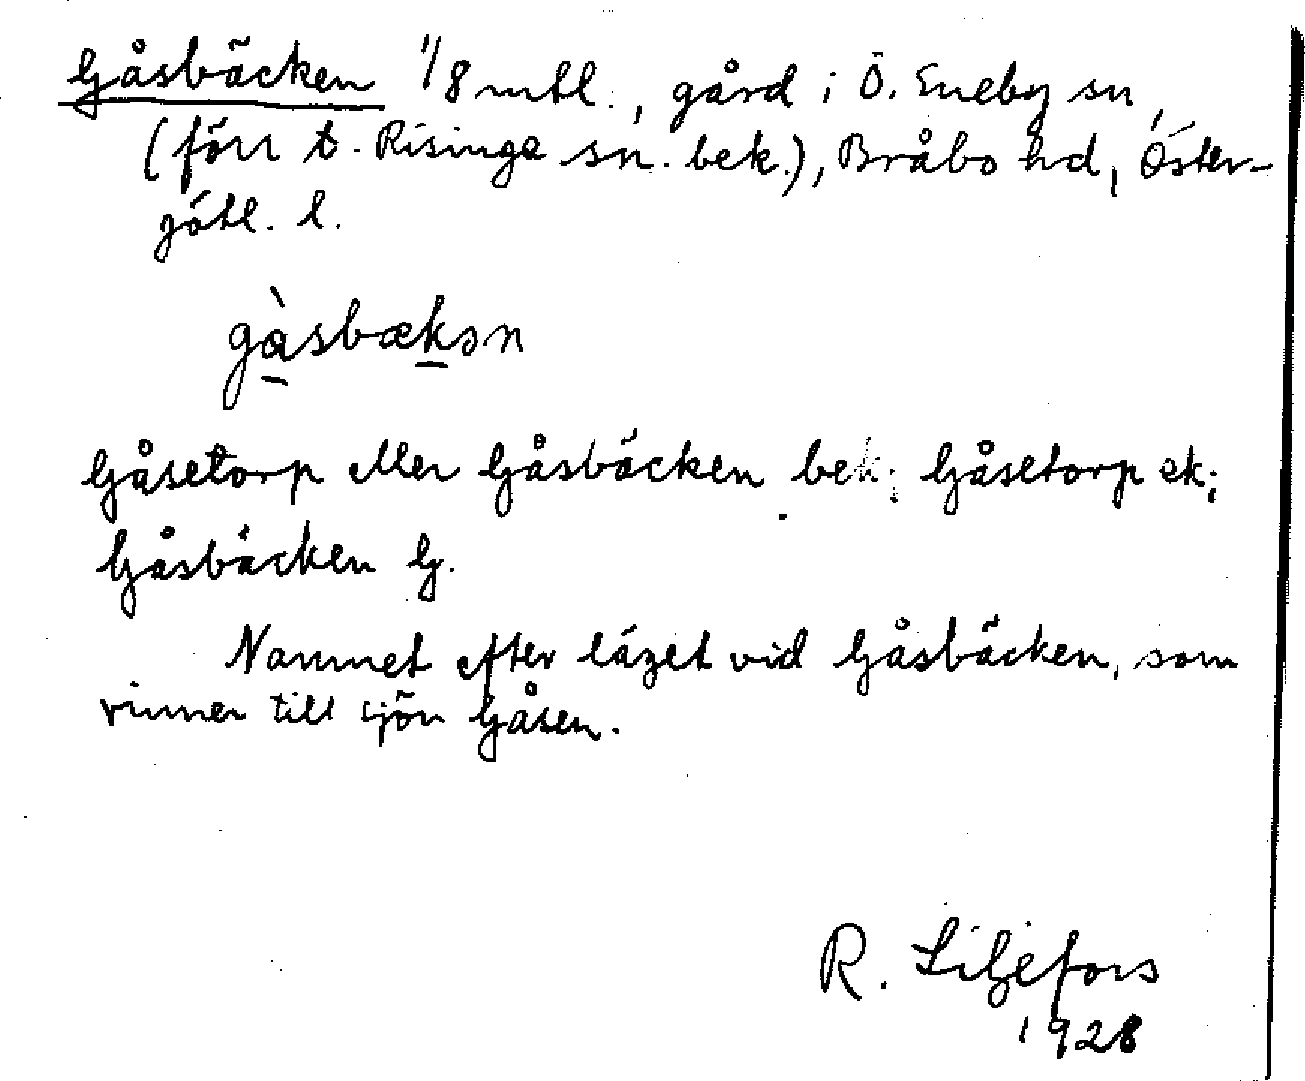 Gåsbäcken 1/8 mtl., gård i Ö. Eneby sn,
(förr t. Risinge sn. bek.), Bråbo hd, Öster-
götl. l.
gàsbækən
Gåsetorp eller Gåsbäcken bek; Gåsetorp ek;
Gåsbäcken G.
Namnet efter läget vid Gåsbäcken, som
rinner till sjön Gåsen.
R. Liljefors
1928